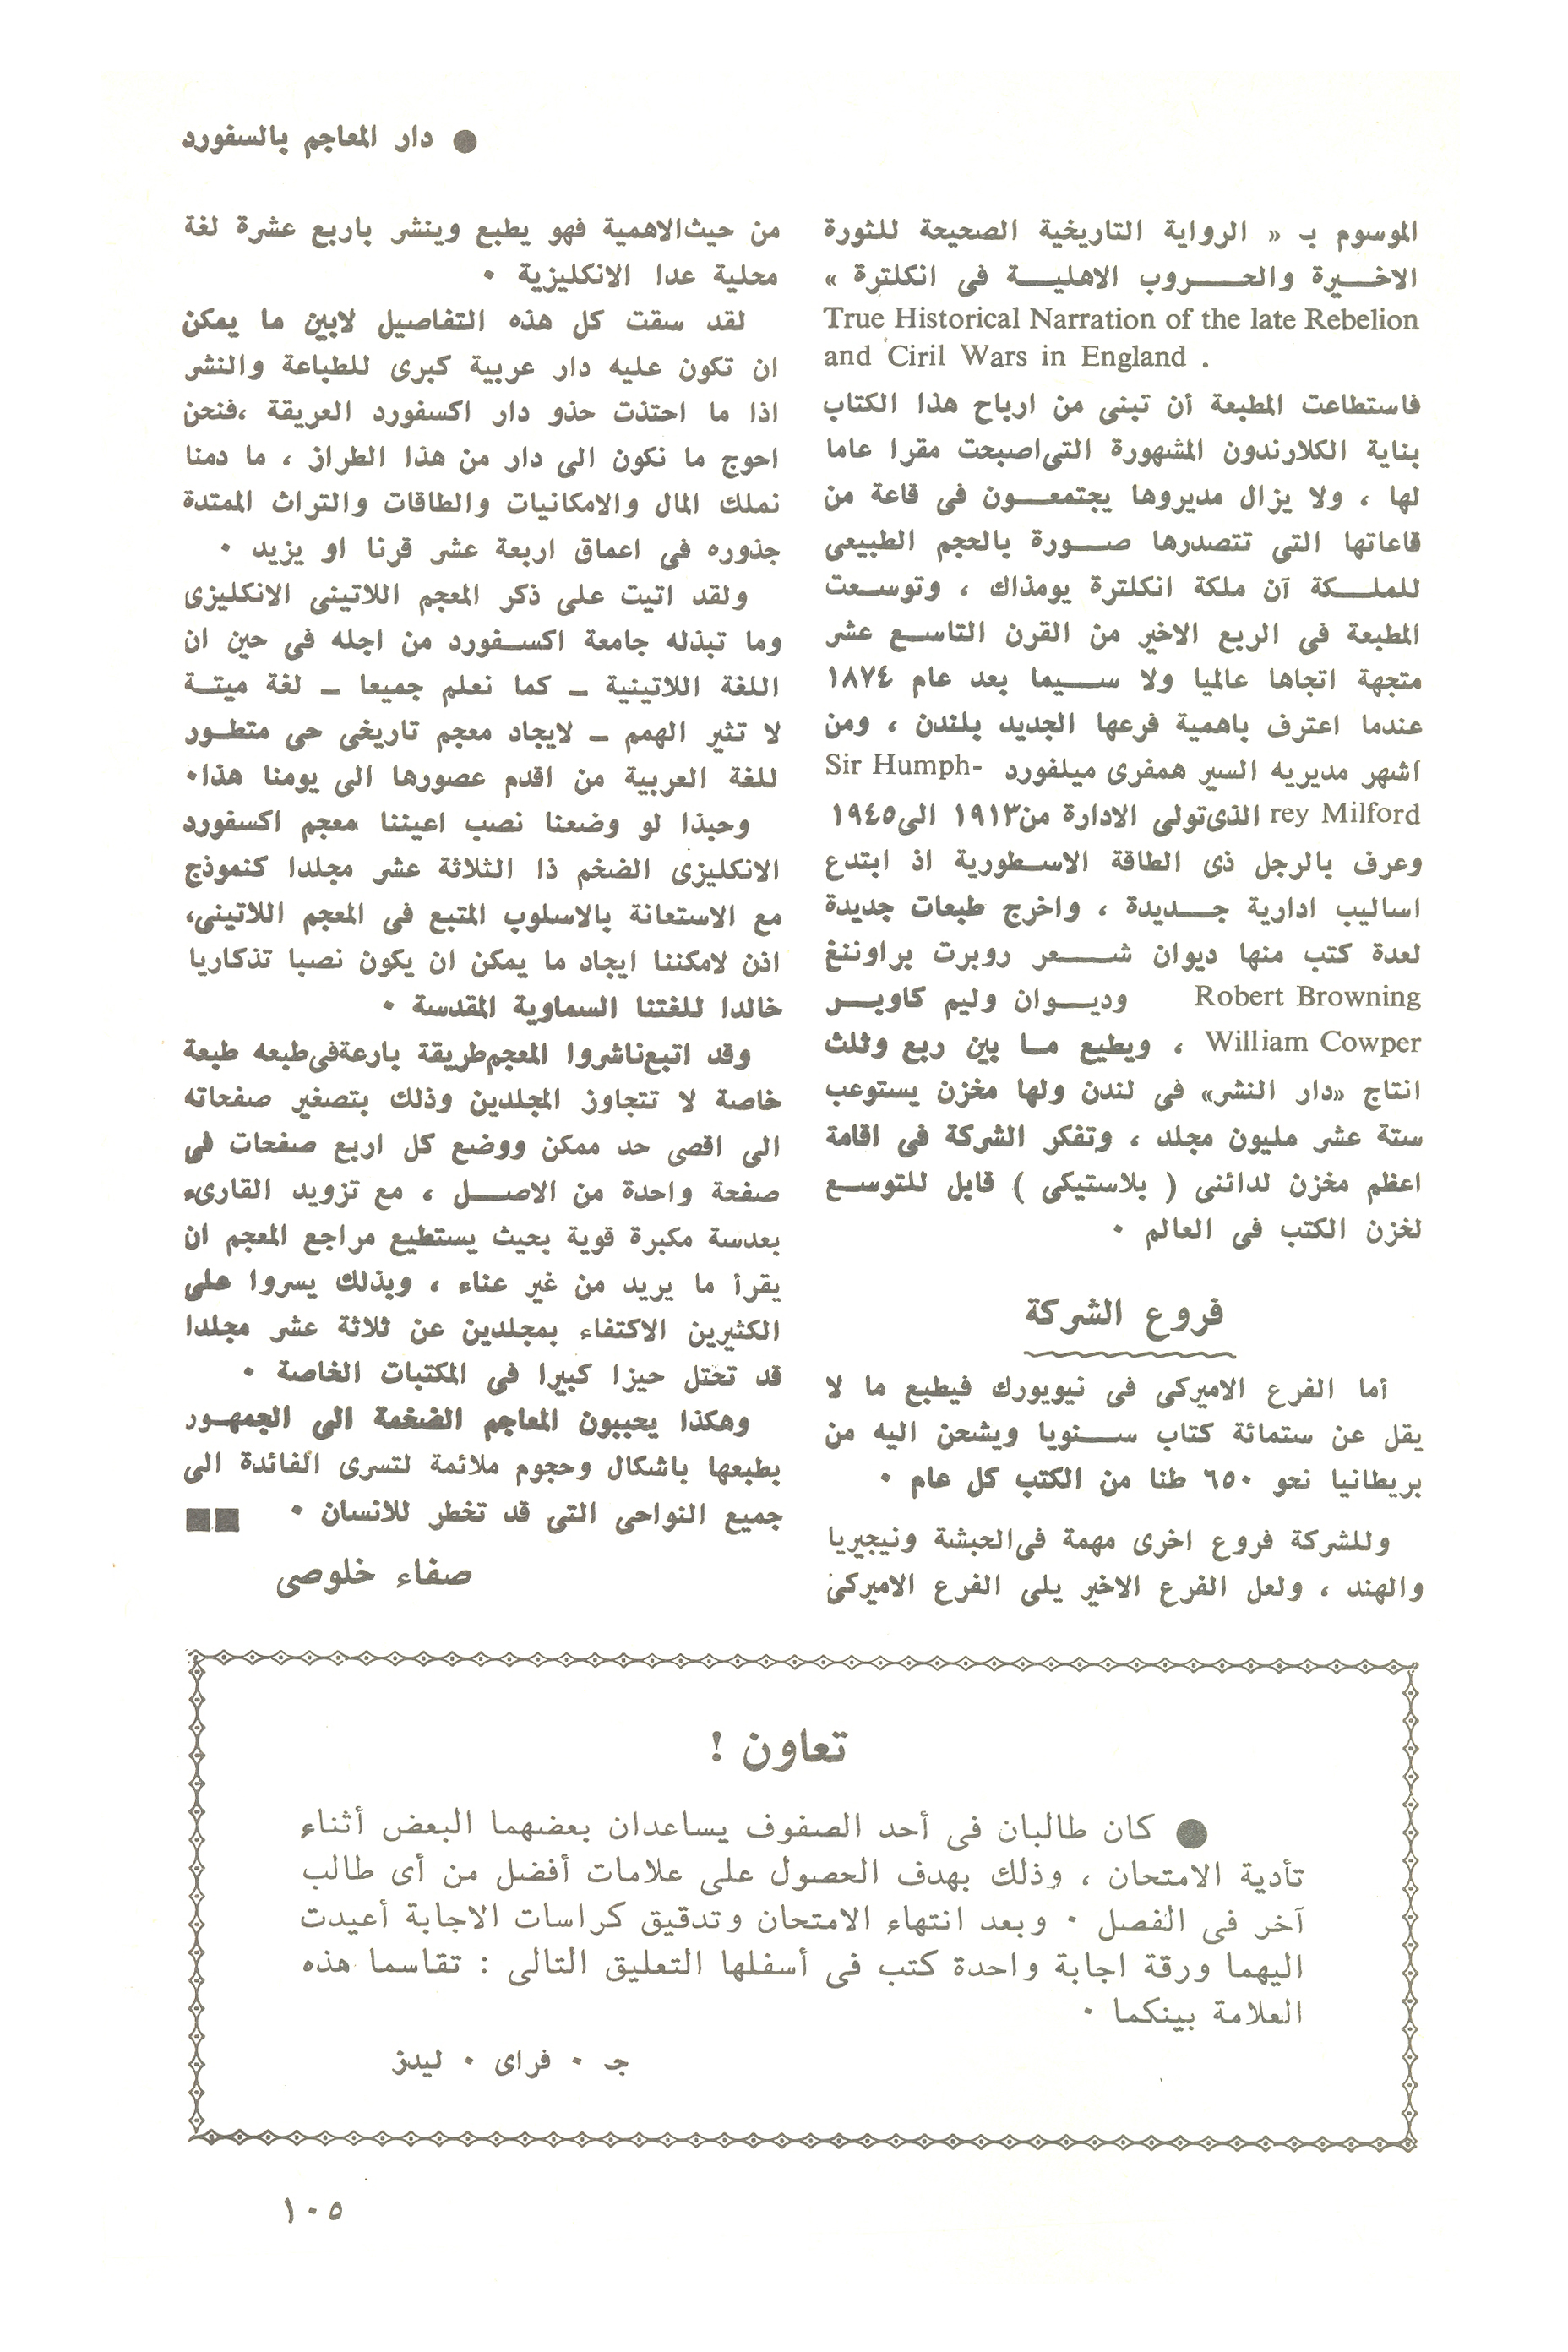 ● دار المعاجم بالسفورد
الموسوم بـ « الرواية التاريخية الصحيحة للثورة
الاخـــيرة والحـــــروب الاهليـــة فى انكلترة »
True Historical Narration of the late Rebelion
and Ciril Wars in England .
فاستطاعت المطبعة أن تبنى من ارباح هذا الكتاب
بناية الكلارندون المشهورة التى اصبحت مقرا عاما
لها ، ولا يزال مديروها يجتمعـــون فى قاعة من
قاعاتها التى تتصدرها صـــورة بالحجم الطبيعى
للملـــكة آن ملكة انكلترة يومذاك ، وتوسـعت
المطبعة فى الربع الاخير من القرن التاسـع عشر
متجهة اتجاها عالميا ولا ســـيما بعد عام ١٨٧٤
عندما اعترف باهمية فرعها الجديد بلندن ، ومن
اشهر مديريه السير همفرى ميلفورد Sir Humph-
rey Milford الذى تولى الادارة من ١٩١٣ الى ١٩٤٥
وعرف بالرجل ذى الطاقة الاسـطورية اذ ابتدع
اساليب ادارية جـــديدة ، واخرج طبعات جديدة
لعدة كتب منها ديوان شـــعر روبرت براوننغ
Robert Browning وديـــوان وليم كاوبـــر
William Cowper ، ويطيع مـا بين ربع وثلث
انتاج «دار النشر» فى لندن ولها مخزن يستوعب
ستة عشر مليون مجلد ، وتفكر الشركة فى اقامة
اعظم مخزن لدائنى ( بلاستيكى ) قابل للتوسـع
لخزن الكتب فى العالم ٠
فروع الشركة
أما الفرع الاميركى فى نيويورك فيطبع ما لا
يقل عن ستمائة كتاب ســـنويا ويشحن اليه من
بريطانيا نحو ٦٥٠ طنا من الكتب كل عام ٠
وللشركة فروع اخرى مهمة فى الحبشة ونيجيريا
والهند ، ولعل الفرع الاخير يلى الفرع الاميركى
من حيث الاهمية فهو يطبع وينشر باربع عشرة لغة
محلية عدا الانكليزية ٠
لقد سقت كل هذه التفاصيل لابين ما يمكن
ان تكون عليه دار عربية كبرى للطباعة والنشر
اذا ما احتذت حذو دار اكسفورد العريقة ،فنحن
احوج ما نكون الى دار من هذا الطراز ، ما دمنا
نملك المال والامكانيات والطاقات والتراث الممتدة
جذوره فى اعماق اربعة عشر قرنا او يزيد ٠
ولقد اتيت على ذكر المعجم اللاتينى الانكليزى
وما تبذله جامعة اكســفورد من اجله فى حين ان
اللغة اللاتينية ــ كما نعلم جميعا ــ لغة ميتـة
لا تثير الهمم ــ لايجاد معجم تاريخى حى متطـور
للغة العربية من اقدم عصورها الى يومنا هذا٠
وحبذا لو وضعنا نصب اعيننا معجم اكسفورد
الانكليزى الضخم ذا الثلاثة عشر مجلدا كنموذج
مع الاستعانة بالاسلوب المتبع فى المعجم اللاتينى،
اذن لامكننا ايجاد ما يمكن ان يكون نصبا تذكاريا
خالدا للغتنا السماوية المقدسة ٠
وقد اتبع ناشروا المعجم طريقة بارعة فى طبعه طبعة
خاصة لا تتجاوز المجلدين وذلك بتصغير صفحاته
الى اقصى حد ممكن ووضع كل اربع صفحات فى
صفحة واحدة من الاصـــل ، مع تزويد القارىء
بعدسة مكبرة قوية بحيث يستطيع مراجع المعجم ان
يقرأ ما يريد من غير عناء ، وبذلك يسروا على
الكثيرين الاكتفاء بمجلدين عن ثلاثة عشر مجلدا
قد تحتل حيزا كبيرا فى المكتبات الخاصة ٠
وهكذا يحببون المعاجم الضخمة الى الجمهـور
بطبعها باشكال وحجوم ملائمة لتسرى الفائدة الى
جميع النواحى التى قد تخطر للانسان ٠ ■■
صفاء خلوصى
تعاون !
● كان طالبان فى أحد الصفوف يساعدان بعضهما البعض أثناء
تأدية الامتحان ، وذلك بهدف الحصول على علامات أفضل من أى طالب
آخر فى الفصل ٠ وبعد انتهاء الامتحان وتدقيق كراسات الاجابة أعيدت
اليهما ورقة اجابة واحدة كتب فى أسفلها التعليق التالى : تقاسما هذه
العلامة بينكما ٠
جـ ٠ فراى ٠ ليدز
١٠٥